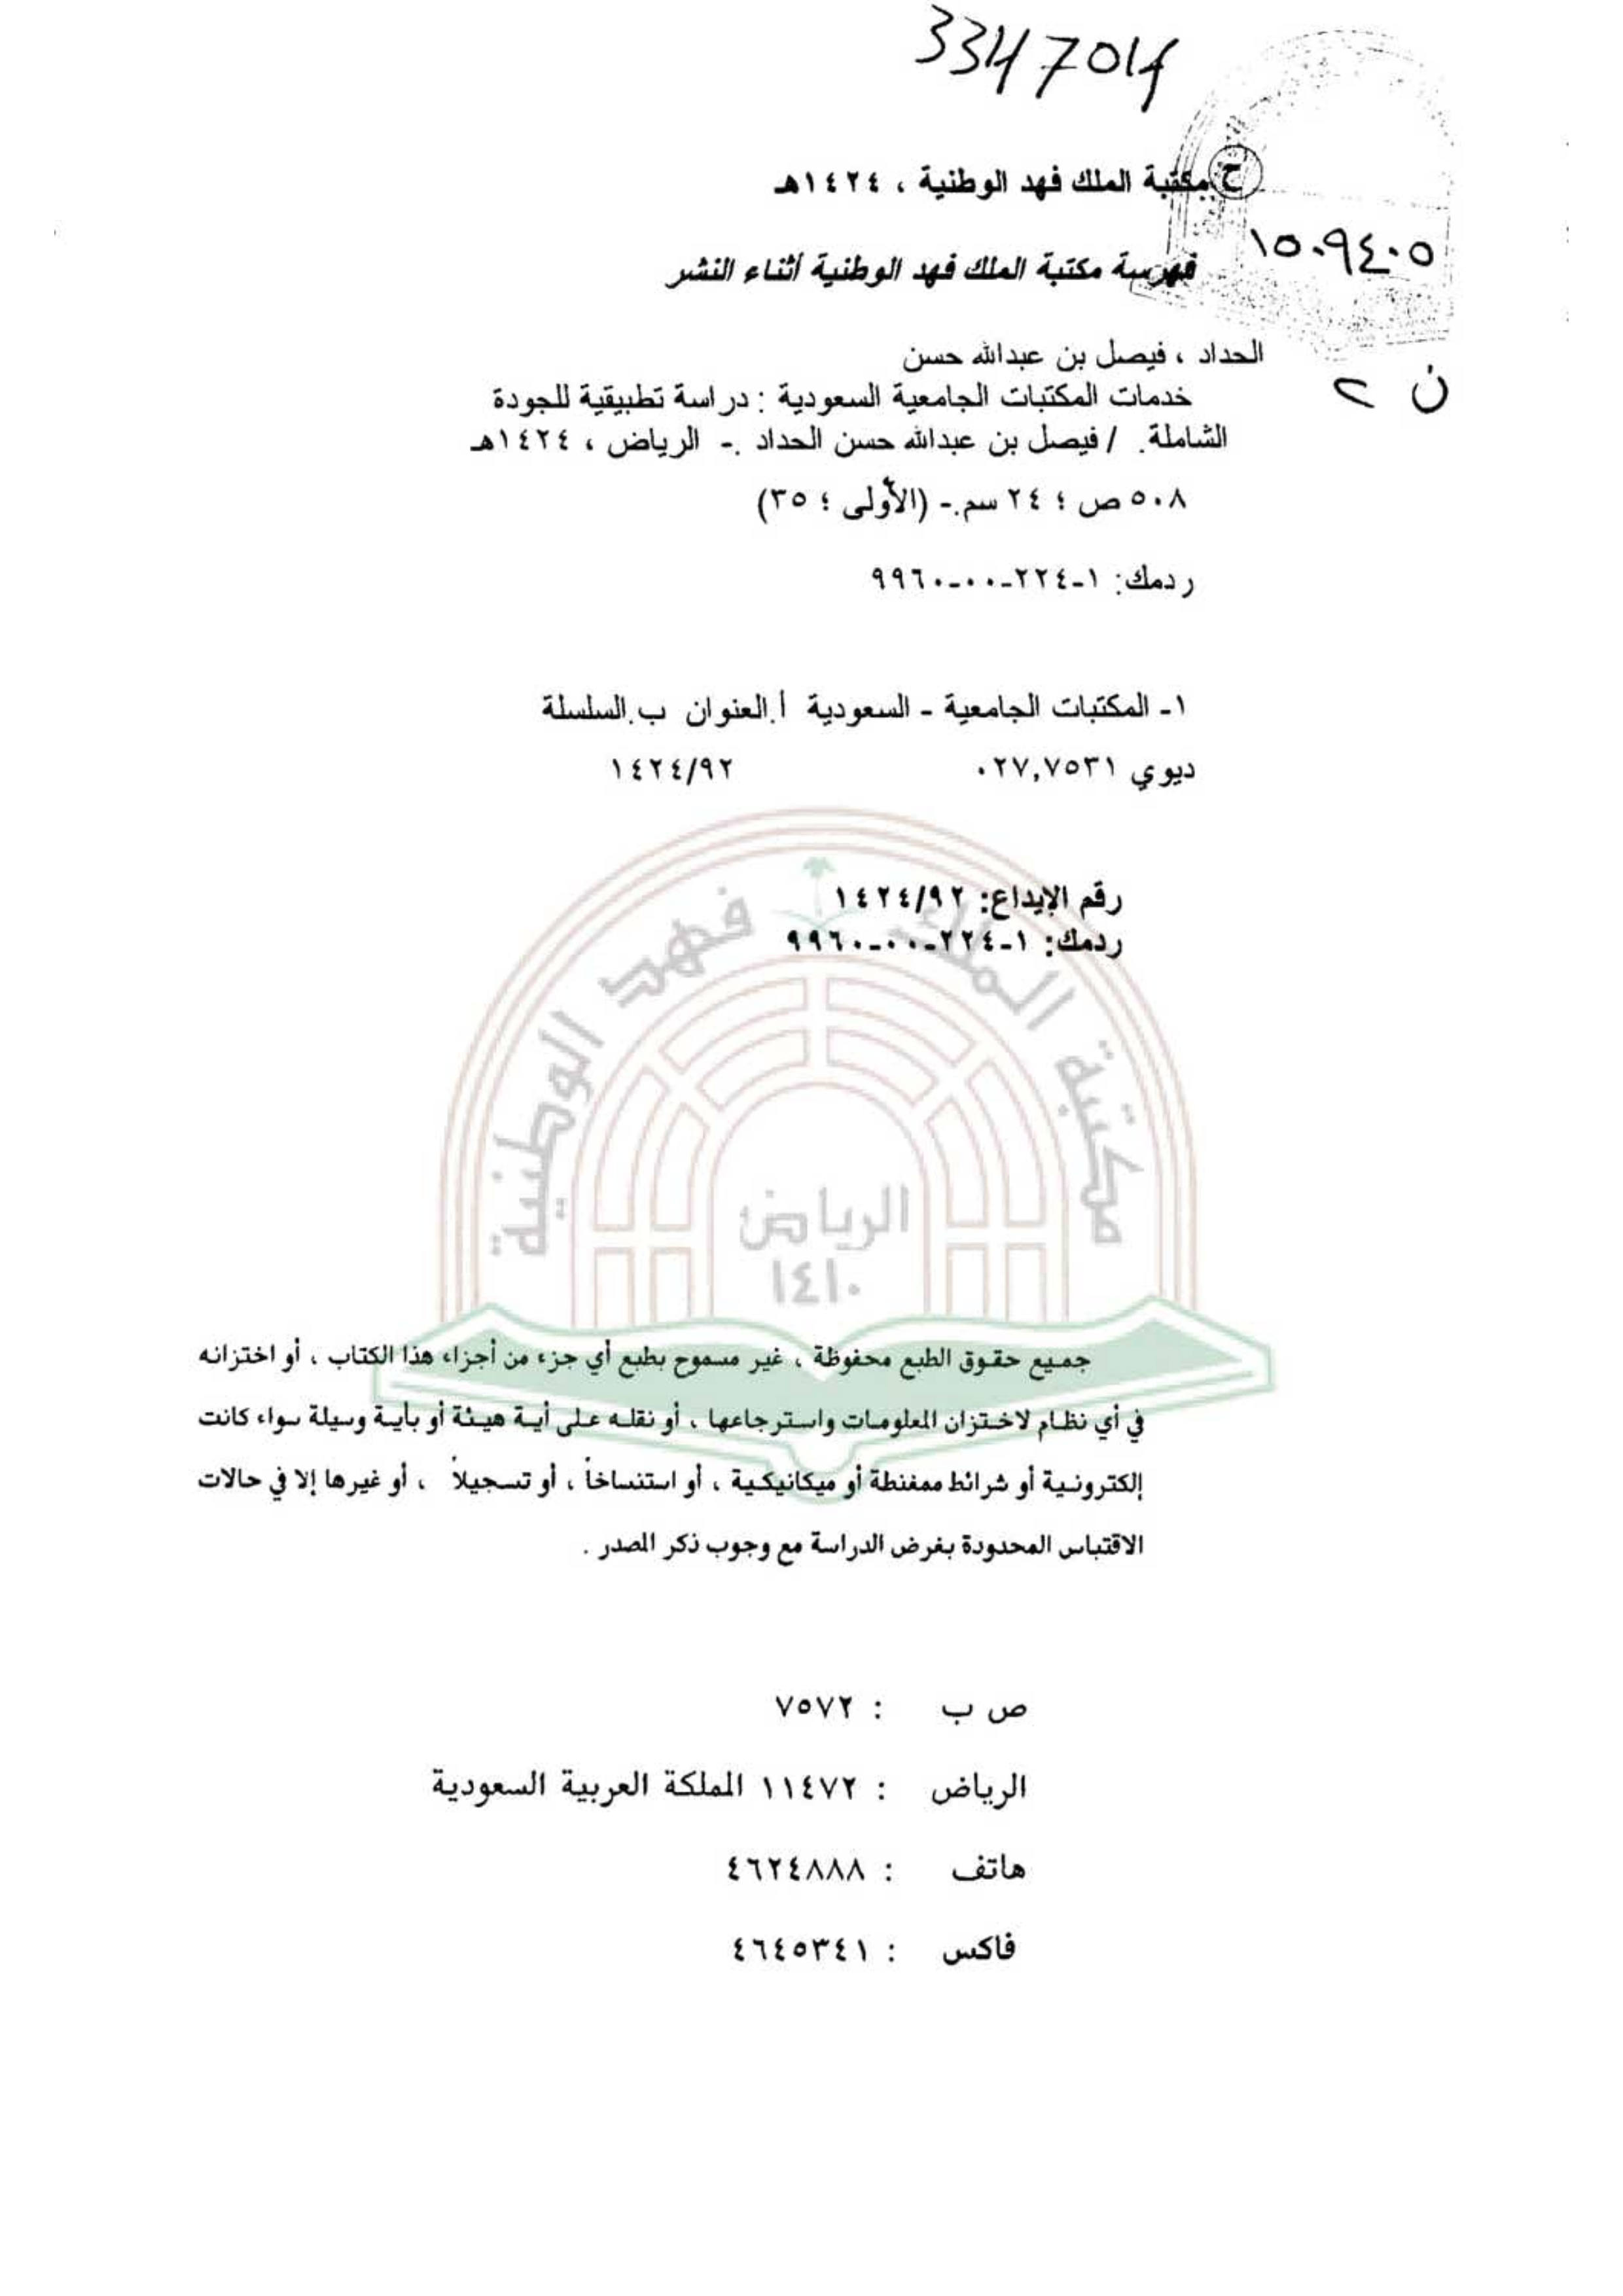 3347014
ح مكتبة الملك فهد الوطنية ، ١٤٢٤هـ
١٥٠٩٤٠٥
فهرسة مكتبة الملك فهد الوطنية أثناء النشر
الحداد ، فيصل بن عبدالله حسن
ن ٢
خدمات المكتبات الجامعية السعودية : دراسة تطبيقية للجودة
الشاملة. / فيصل بن عبدالله حسن الحداد .- الرياض ، ١٤٢٤هـ
٥٠٨ ص ؛ ٢٤ سم.- (الأولى ؛ ٣٥)
ردمك: ١-٢٢٤-٠٠-٩٩٦٠
١- المكتبات الجامعية - السعودية أ.العنوان ب.السلسلة
ديوي ٠٢٧,٧٥٣١ ١٤٢٤/٩٢
رقم الإيداع: ١٤٢٤/٩٢
ردمك: ١-٢٢٤-٠٠-٩٩٦٠
مكتبة الملك فهد الوطنية
الرياض
١٤١٠
جميع حقوق الطبع محفوظة ، غير مسموح بطبع أي جزء من أجزاء هذا الكتاب ، أو اختزانه
في أي نظام لاختزان المعلومات واسترجاعها ، أو نقله على أية هيئة أو بأية وسيلة سواء كانت
إلكترونية أو شرائط ممغنطة أو ميكانيكية ، أو استنساخاً ، أو تسجيلاً ، أو غيرها إلا في حالات
الاقتباس المحدودة بغرض الدراسة مع وجوب ذكر المصدر .
ص ب : ٧٥٧٢
الرياض : ١١٤٧٢ المملكة العربية السعودية
هاتف : ٤٦٢٤٨٨٨
فاكس : ٤٦٤٥٣٤١